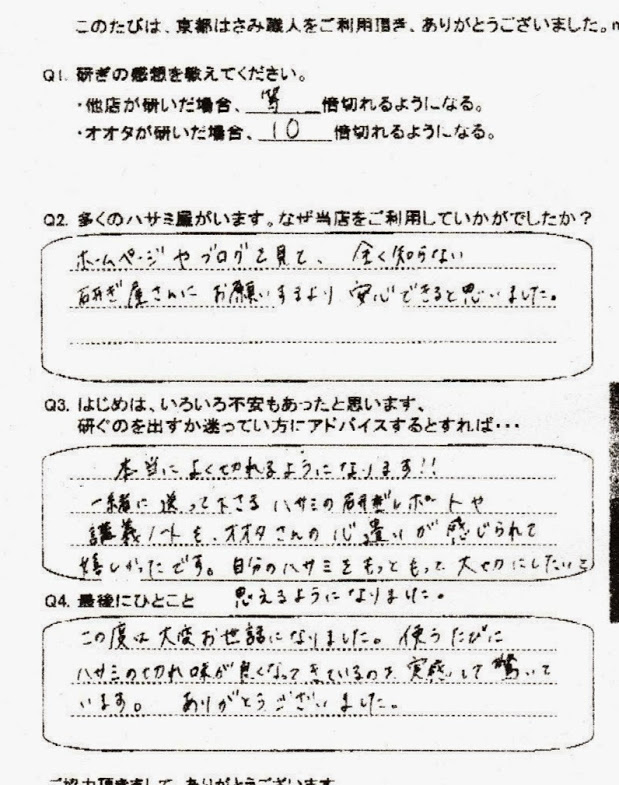 このたびは、京都はさみ職人をご利用頂き、ありがとうございました。m
Q1. 研ぎの感想を教えてください。
・他店が研いだ場合、 倍切れるようになる。
・オオタが研いだ場合、10倍切れるようになる。
Q2. 多くのハサミ屋がいます。なぜ当店をご利用していかがでしたか?
ホームページやブログを見て、全く知らない
研ぎ屋さんにお願いするより安心できると思いました。
Q3. はじめは、いろいろ不安もあったと思います、
研ぐのを出すか迷ってい方にアドバイスするとすれば・・・
本当によく切れるようになります!!
一緒に送って下さるハサミの研ぎレポートや
講義ノートも、オオタさんの心遣いが感じられて
嬉しかったです。自分のハサミをもっともっと大切にしたいと
思えるようになりました。
Q4. 最後にひとこと
この度は大変お世話になりました。使うたびに
ハサミの切れ味が良くなってきているのを実感して驚いて
います。 ありがとうございました。
ご協力頂きまして、ありがとうございます